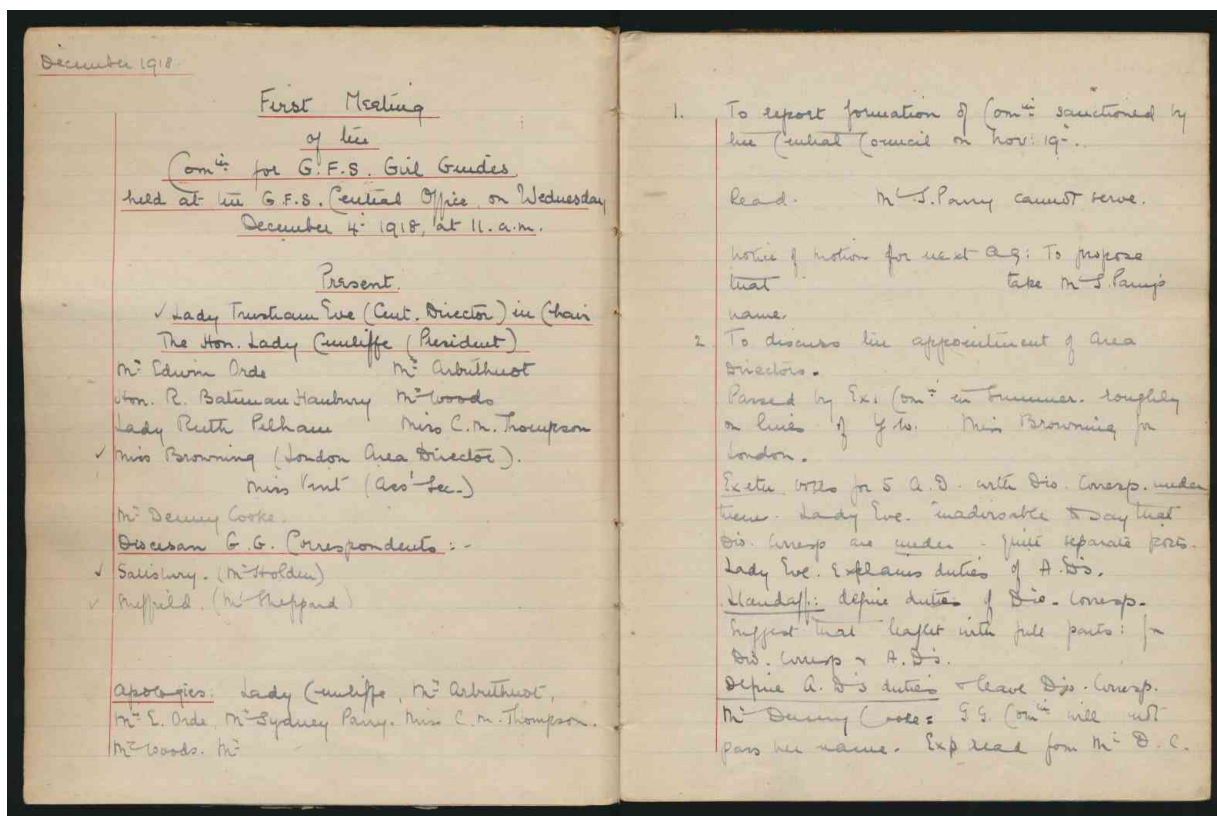 December 1918.
First Meeting
of the
Com^tee for G.F.S. Girl Guides
held at the G.F.S. Central Office, on Wednesday
December 4^th 1918, at 11. a.m.
Present.
✓ Lady Trustram Eve (Cent. Director) in Chair
The Hon. Lady Cunliffe (President)
M^rs Edwin Orde M^rs Arbuthnot
Hon. R. Bateman Hanbury M^rs Woods
Lady Ruth Pelham Miss C. M. Thompson
✓ Miss Browning (London Area Director).
Miss Vint (Sec.)
M^rs Denny Cooke.
Diocesan G. G. Correspondents :-
✓ Salisbury. (M^rs Holden)
✓ Sheffield. (M^rs Sheppard)
Apologies: Lady Cunliffe, M^rs Arbuthnot,
M^rs E. Orde, M^rs Sydney Parry. Miss C. M. Thompson.
M^rs Woods. M^rs
1. To report formation of Com^tee sanctioned by
the Central Council on Nov: 19^th.
Read. M^rs S. Parry cannot serve.
Notice of motion for next Ag: To propose
that take M^rs S. Parry's
name.
2 To discuss the appointment of Area
Directors.
Passed by Ex: Com^tee in Summer. roughly
on lines of Miss Browning for
London.
Exeter votes for 5 A.D. with Dio. Corresp. under
them. Lady Eve. inadvisable to say that
Dio. Corresp are under - quite separate posts.
Lady Eve. Explains duties of A.D's.
Llandaff: define duties of Dio. Corresp.
Suggest that leaflet with full parts: for
Dio. Corresp & A.D's.
Define A.D's duties & leave Dio. Corresp.
M^rs Denny Cooke: G.G. Com^tee will not
pass her name. Exp read from M^rs D. C.